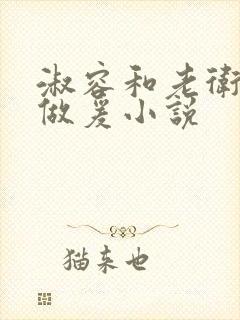 淑容和老衛
做爰小説
猫来也